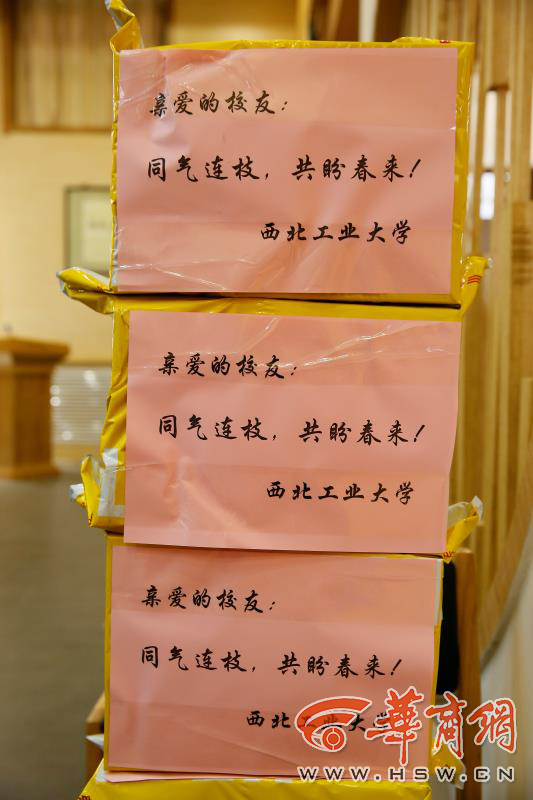 亲爱的校友：
同气连枝，共盼春来！
西北工业大学
亲爱的校友：
同气连枝，共盼春来！
西北工业大学
亲爱的校友：
同气连枝，共盼春来！
西北工业大学
华商網
WWW.HSW.CN